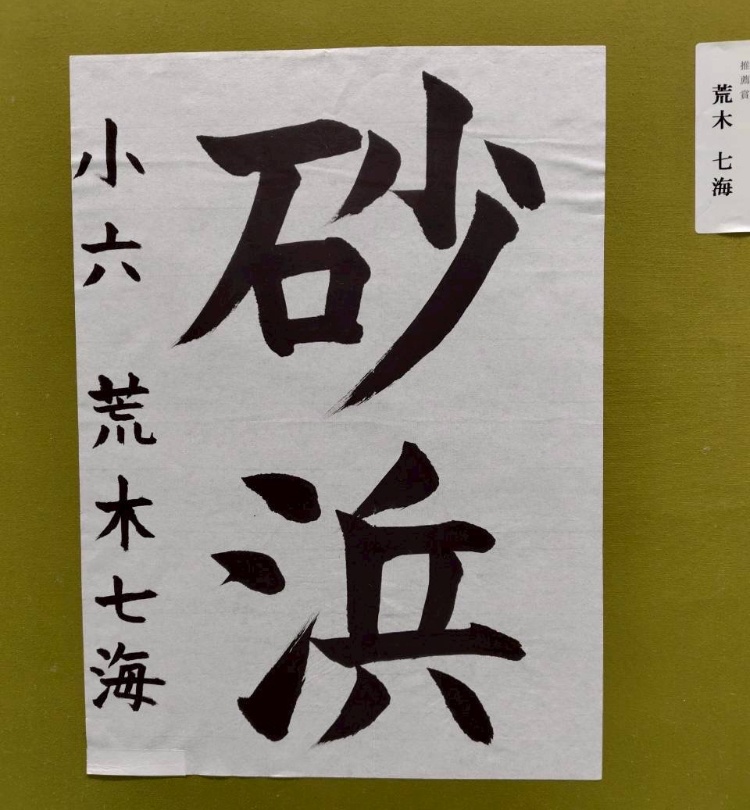 推薦賞
荒木 七海
砂浜
小六 荒木七海